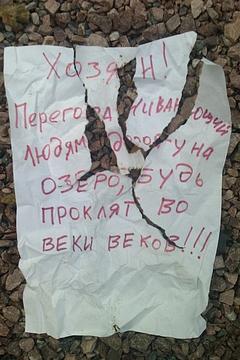 ХОЗЯ Н!
Перего ажива ющий
людям дорогу на
ОЗЕРО, БУДЬ
ПРОКЛЯТ ВО
ВЕКИ ВЕКОВ!!!